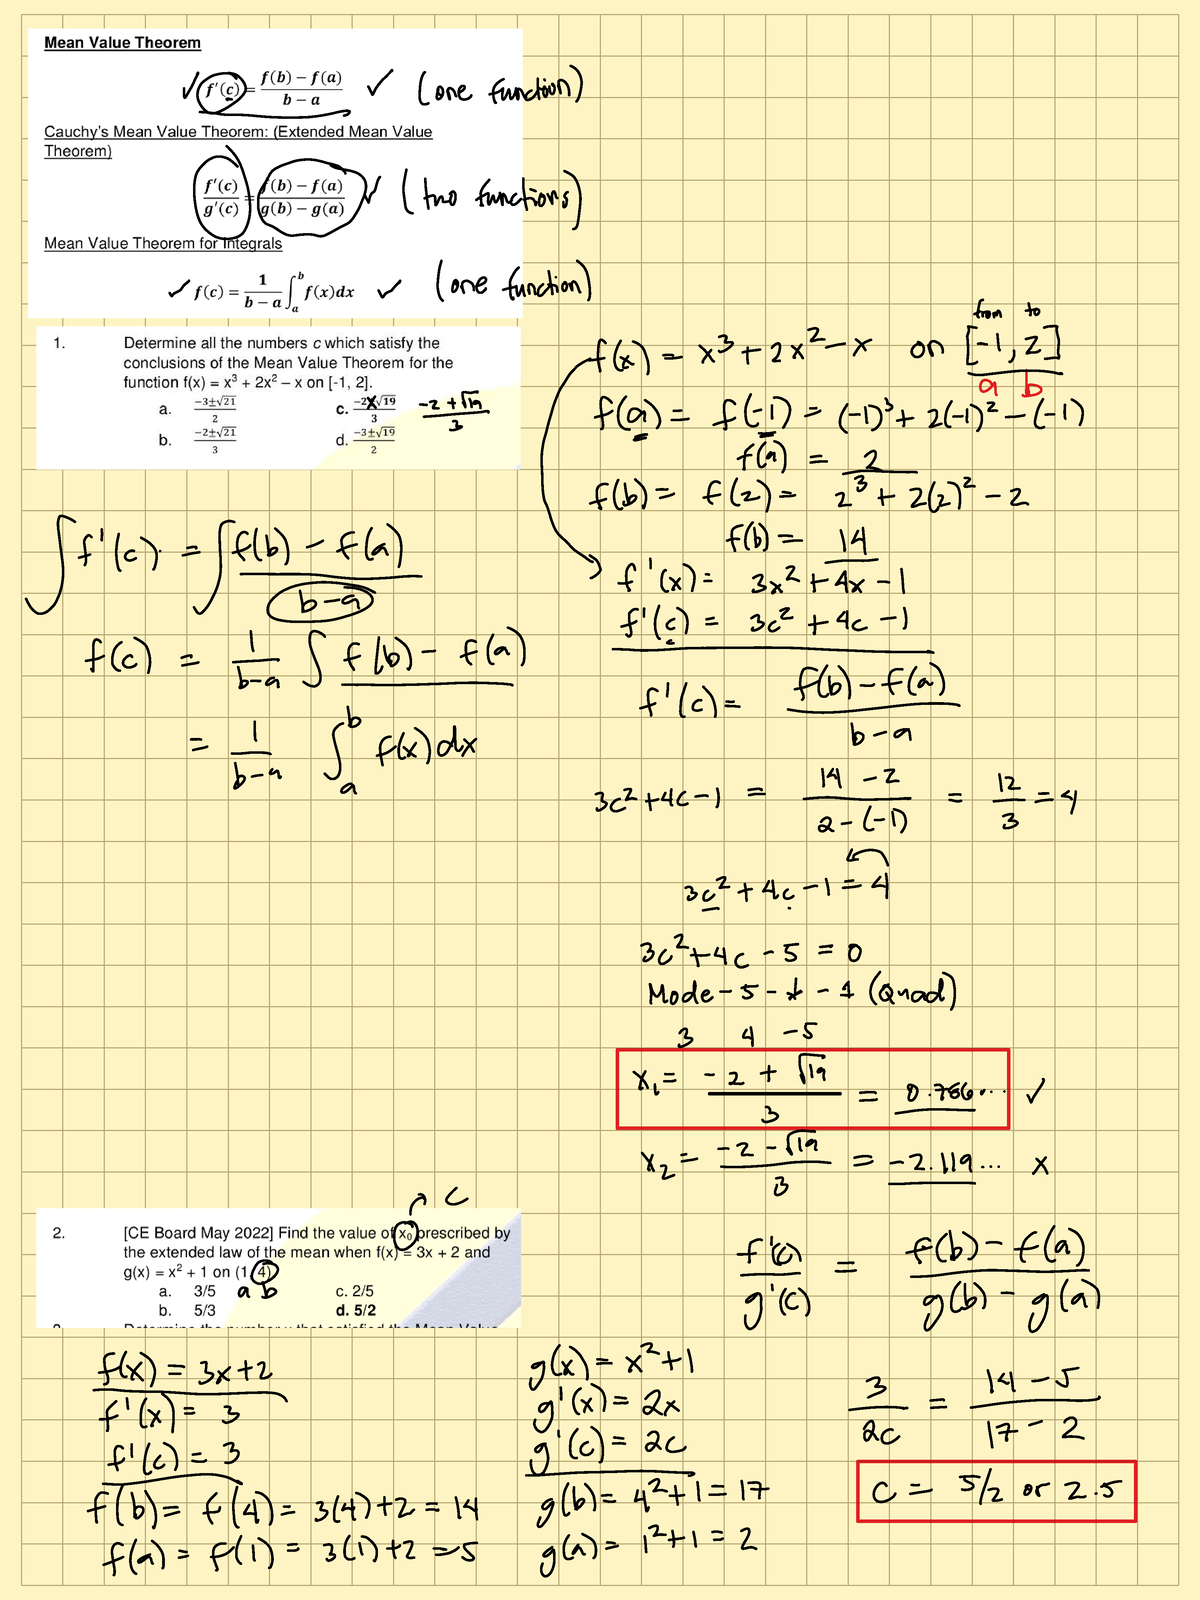 Mean Value Theorem
✓ f'(c) = f(b) − f(a) / b − a ✓ (one function)
Cauchy's Mean Value Theorem: (Extended Mean Value
Theorem)
f'(c) / g'(c) = f(b) − f(a) / g(b) − g(a) ✓ (two functions)
Mean Value Theorem for Integrals
✓ f(c) = 1 / b − a ∫ₐᵇ f(x)dx ✓ (one function)
1. Determine all the numbers c which satisfy the
conclusions of the Mean Value Theorem for the
function f(x) = x³ + 2x² – x on [-1, 2].
a. −3±√21 / 2
c. −2±√19 / 3
-2 + √19 / 3
b. −2±√21 / 3
d. −3±√19 / 2
from to
f(x) = x³ + 2x² − x on [-1, 2]
a b
f(a) = f(-1) = (-1)³ + 2(-1)² − (-1)
f(a) = 2
f(b) = f(2) = 2³ + 2(2)² − 2
f(b) = 14
f'(x) = 3x² + 4x − 1
f'(c) = 3c² + 4c − 1
f'(c) = f(b) − f(a) / b − a
3c² + 4c − 1 = 14 − 2 / 2 − (-1) = 12 / 3 = 4
3c² + 4c − 1 = 4
3c² + 4c − 5 = 0
Mode − 5 − ↓ − 1 (Quad)
3 4 −5
x₁ = −2 + √19 / 3 = 0.786... ✓
x₂ = −2 − √19 / 3 = −2.119... x
∫ f'(c) = ∫ f(b) − f(a) / b − a
f(c) = 1 / b−a ∫ f(b) − f(a)
= 1 / b−a ∫ₐᵇ f(x) dx
c
2. [CE Board May 2022] Find the value of x₀ prescribed by
the extended law of the mean when f(x) = 3x + 2 and
g(x) = x² + 1 on (1,4)
a. 3/5 a b c. 2/5
b. 5/3 d. 5/2
f'(c) / g'(c) = f(b) − f(a) / g(b) − g(a)
f(x) = 3x + 2
f'(x) = 3
f'(c) = 3
f(b) = f(4) = 3(4) + 2 = 14
f(a) = f(1) = 3(1) + 2 = 5
g(x) = x² + 1
g'(x) = 2x
g'(c) = 2c
g(b) = 4² + 1 = 17
g(a) = 1² + 1 = 2
3 / 2c = 14 − 5 / 17 − 2
c = 5/2 or 2.5